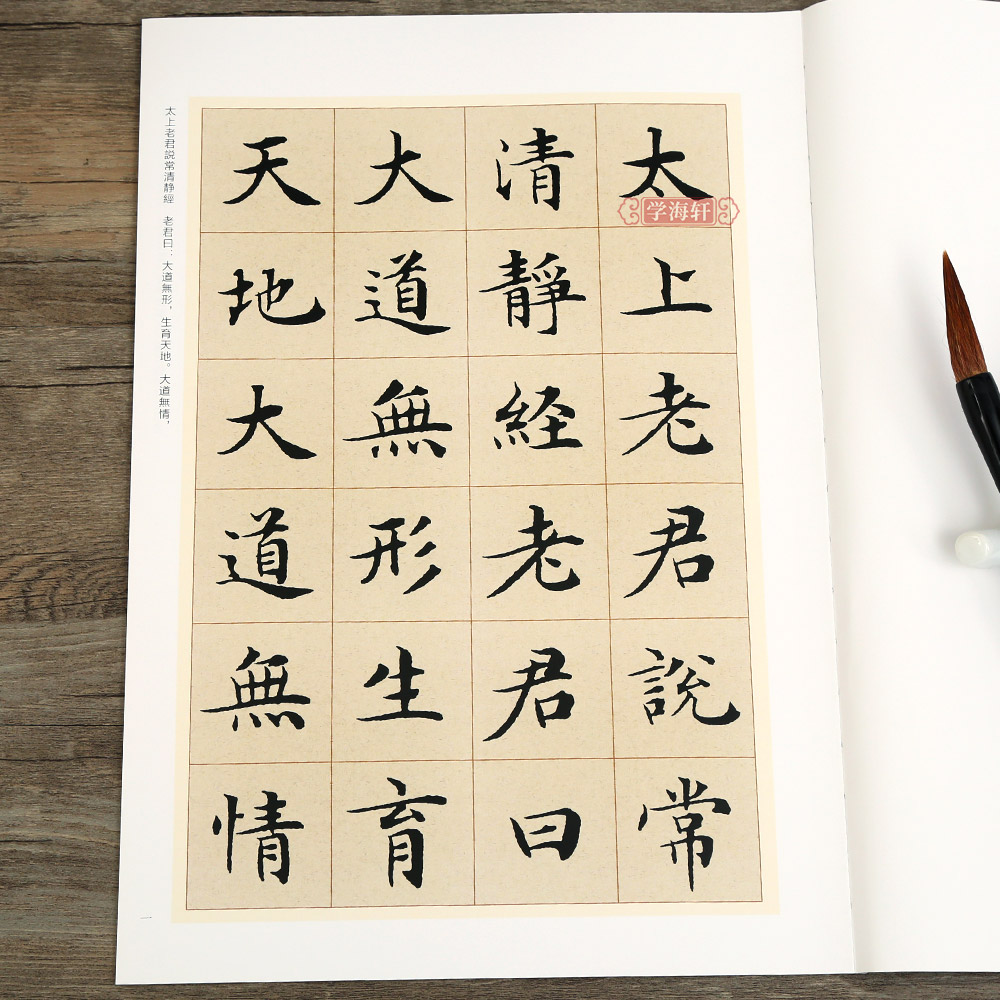 太上老君說常
清靜経老君曰
大道無形生育
天地大道無情
太上老君説常清静經 老君曰：大道無形，生育天地。大道無情，
学海轩
一